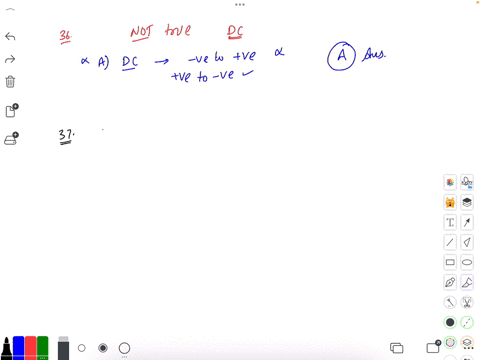 36. NOT true DC
∝ A) DC → -ve to +ve ∝ A Ans.
+ve to -ve ✓
37.